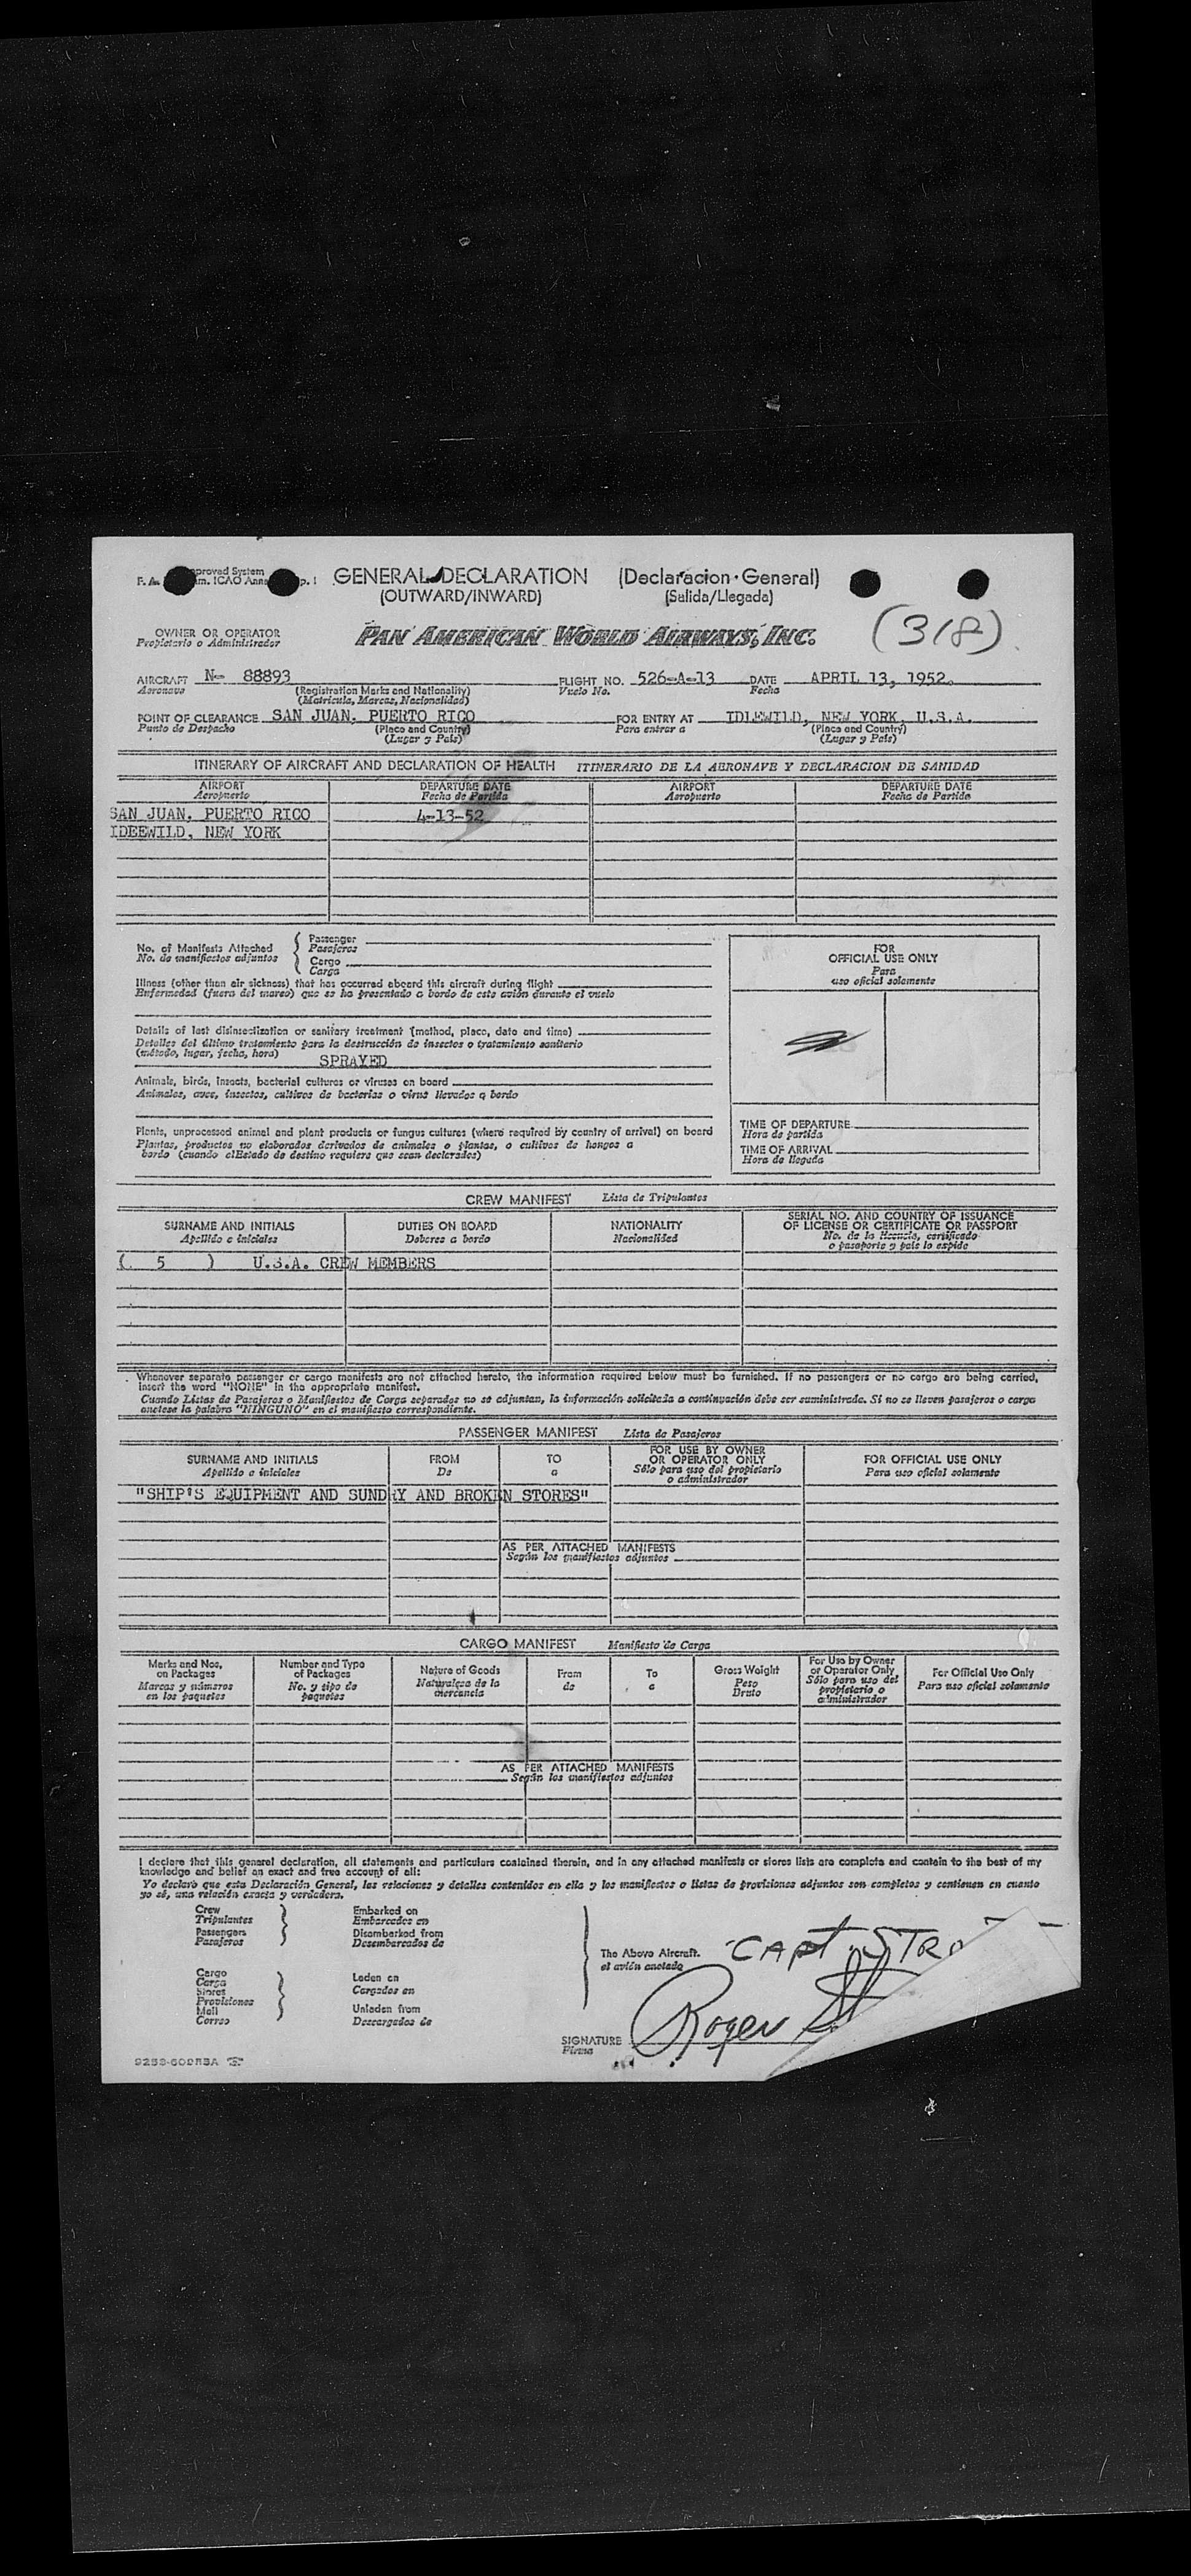 GENERAL DECLARATION (Declaracion · General)
(OUTWARD/INWARD) (Salida/Llegada)
OWNER OR OPERATOR
Propietario o Administrador
PAN AMERICAN WORLD AIRWAYS, INC.
(318)
AIRCRAFT N- 88893 FLIGHT NO. 526-A-13 DATE APRIL 13, 1952.
Aeronave (Registration Marks and Nationality) Vuelo No. Fecha
(Matricula, Marcas, Nacionalidad)
POINT OF CLEARANCE SAN JUAN, PUERTO RICO FOR ENTRY AT IDLEWILD, NEW YORK, U.S.A.
Punto de Despacho (Place and Country) Para entrar a (Place and Country)
(Lugar y Pais) (Lugar y Pais)
ITINERARY OF AIRCRAFT AND DECLARATION OF HEALTH ITINERARIO DE LA AERONAVE Y DECLARACION DE SANIDAD
AIRPORT DEPARTURE DATE AIRPORT DEPARTURE DATE
Aeropuerto Fecha de Partida Aeropuerto Fecha de Partida
SAN JUAN, PUERTO RICO 4-13-52
IDEEWILD, NEW YORK
No. of Manifests Attached
No. de manifiestos adjuntos
Passenger
Pasajeros
Cargo
Carga
Illness (other than air sickness) that has occurred aboard this aircraft during flight
Enfermedad (fuera del mareo) que se ha presentado a bordo de este avión durante el vuelo
Details of last disinsectization or sanitary treatment (method, place, date and time)
Detalles del último tratamiento para la destrucción de insectos o tratamiento sanitario
(método, lugar, fecha, hora)
SPRAYED
Animals, birds, insects, bacterial cultures or viruses on board
Animales, aves, insectos, cultivos de bacterias o virus llevados a bordo
Plants, unprocessed animal and plant products or fungus cultures (where required by country of arrival) on board
Plantas, productos no elaborados derivados de animales o plantas, o cultivos de hongos a
bordo (cuando elEstado de destino requiera que sean declarados)
FOR
OFFICIAL USE ONLY
Para
uso oficial solamente
TIME OF DEPARTURE
Hora de partida
TIME OF ARRIVAL
Hora de llegada
CREW MANIFEST Lista de Tripulantes
SURNAME AND INITIALS DUTIES ON BOARD NATIONALITY SERIAL NO. AND COUNTRY OF ISSUANCE
OF LICENSE OR CERTIFICATE OR PASSPORT
Apellido e iniciales Deberes a bordo Nacionalidad No. de la licencia, certificado
o pasaporte y pais lo expide
( 5 ) U.S.A. CREW MEMBERS
Whenever separate passenger or cargo manifests are not attached hereto, the information required below must be furnished. If no passengers or no cargo are being carried,
insert the word "NONE" in the appropriate manifest.
Cuando Listas de Pasajeros o Manifiestos de Carga separados no se adjuntan, la información solicitada a continuación debe ser suministrada. Si no se lleven pasajeros o carga
anótese la palabra "NINGUNO" en el manifiesto correspondiente.
PASSENGER MANIFEST Lista de Pasajeros
SURNAME AND INITIALS FROM TO FOR USE BY OWNER
OR OPERATOR ONLY FOR OFFICIAL USE ONLY
Apellido e iniciales De a Sólo para uso del propietario
o administrador Para uso oficial solamente
"SHIP'S EQUIPMENT AND SUNDRY AND BROKEN STORES"
AS PER ATTACHED MANIFESTS
Según los manifiestos adjuntos
CARGO MANIFEST Manifiesto de Carga
Marks and Nos.
on Packages
Marcas y números
en los paquetes
Number and Type
of Packages
No. y tipo de
paquetes
Nature of Goods
Naturaleza de la
mercancia
From
de
To
a
Gross Weight
Peso
Bruto
For Use by Owner
or Operator Only
Sólo para uso del
propietario o
administrador
For Official Use Only
Para uso oficial solamente
AS PER ATTACHED MANIFESTS
Según los manifiestos adjuntos
I declare that this general declaration, all statements and particulars contained therein, and in any attached manifests or stores lists are complete and contain to the best of my
knowledge and belief an exact and true account of all:
Yo declaro que esta Declaración General, las relaciones y detalles contenidos en ella y los manifiestos o listas de provisiones adjuntos son completos y contienen en cuanto
yo sé, una relación exacta y verdadera.
Crew
Tripulantes
Passengers
Pasajeros
Embarked on
Embarcados en
Disembarked from
Desembarcados de
Cargo
Carga
Stores
Provisiones
Mail
Correo
Laden on
Cargados en
Unladen from
Descargados de
The Above Aircraft.
el avión anotado
CAPT. STRO
SIGNATURE Roger
Firma